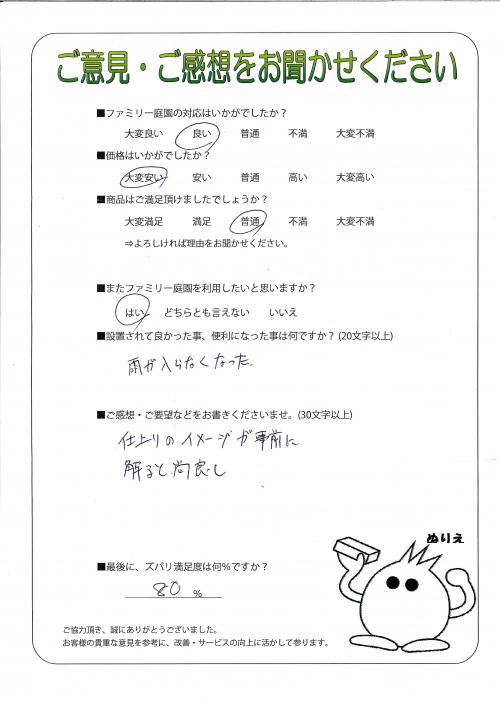 ご意見・ご感想をお聞かせください
■ファミリー庭園の対応はいかがでしたか？
大変良い 良い 普通 不満 大変不満
■価格はいかがでしたか？
大変安い 安い 普通 高い 大変高い
■商品はご満足頂けましたでしょうか？
大変満足 満足 普通 不満 大変不満
⇒よろしければ理由をお聞かせください。
■またファミリー庭園を利用したいと思いますか？
はい どちらとも言えない いいえ
■設置されて良かった事、便利になった事は何ですか？(20文字以上)
雨が入らなくなった.
■ご感想・ご要望などをお書きくださいませ。(30文字以上)
仕上りのイメージが事前に
解ると尚良し
ぬりえ
■最後に、ズバリ満足度は何％ですか？
80 %
ご協力頂き、誠にありがとうございました。
お客様の貴重な意見を参考に、改善・サービスの向上に活かして参ります。